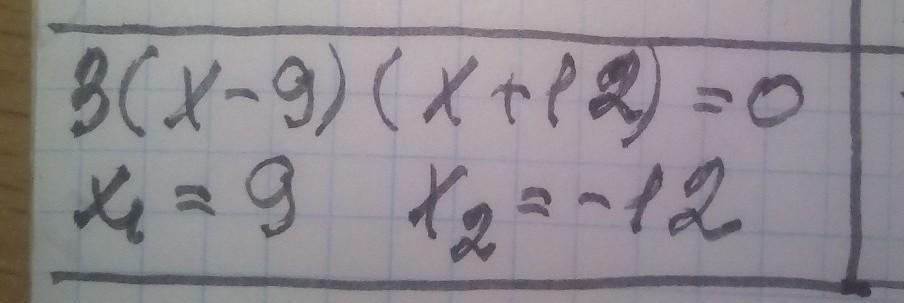 3(x-9)(x+12)=0
x₁=9 x₂=-12